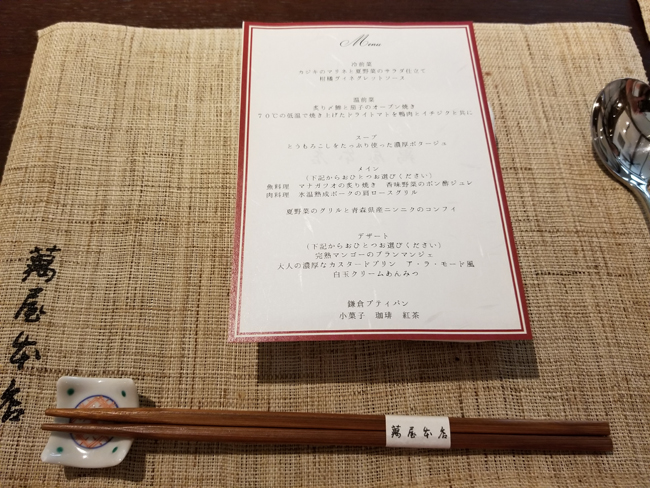 Menu
冷前菜
カジキのマリネと夏野菜のサラダ仕立て
柑橘ヴィネグレットソース
温前菜
炙り〆鯖と茄子のオーブン焼き
70℃の低温で焼き上げたドライトマトを鴨肉とイチジクと共に
スープ
とうもろこしをたっぷり使った濃厚ポタージュ
メイン
(下記からおひとつお選びください)
魚料理 マナガツオの炙り焼き 香味野菜のポン酢ジュレ
肉料理 氷温熟成ポークの肩ロースグリル
夏野菜のグリルと青森県産ニンニクのコンフィ
デザート
(下記からおひとつお選びください)
完熟マンゴーのブランマンジェ
大人の濃厚なカスタードプリン ア・ラ・モード風
白玉クリームあんみつ
鎌倉プティパン
小菓子 珈琲 紅茶
萬屋本店
萬屋本店